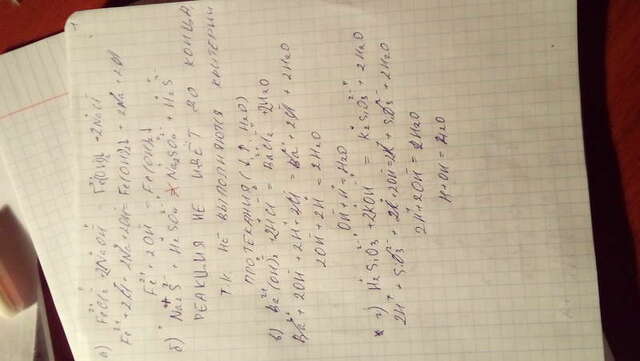 а) FeCl₂ + 2NaOH = Fe(OH)₂↓ + 2NaCl
Fe²⁺ + 2Cl⁻ + 2Na⁺ + 2OH⁻ = Fe(OH)₂↓ + 2Na⁺ + 2Cl⁻
Fe²⁺ + 2OH⁻ = Fe(OH)₂↓
б) Na₂⁺S²⁻ + H₂SO₄²⁻ ≠ Na₂SO₄²⁻ + H₂⁺S²⁻
РЕАКЦИЯ НЕ ИДЁТ ДО КОНЦА,
Т.К. НЕ ВЫПОЛНЯЮТСЯ КРИТЕРИИ
ПРОТЕКАНИЯ (↓,↑, H₂O)
в) Ba²⁺(OH)₂⁻ + 2H⁺Cl⁻ = Ba²⁺Cl₂⁻ + 2H₂O
Ba²⁺ + 2OH⁻ + 2H⁺ + 2Cl⁻ = Ba²⁺ + 2Cl⁻ + 2H₂O
2OH⁻ + 2H⁺ = 2H₂O
OH⁻ + H⁺ = H₂O
г) H₂⁺SiO₃²⁻ + 2K⁺OH⁻ = K₂⁺SiO₃²⁻ + 2H₂O
2H⁺ + SiO₃²⁻ + 2K⁺ + 2OH⁻ = 2K⁺ + SiO₃²⁻ + 2H₂O
2H⁺ + 2OH⁻ = 2H₂O
H + OH = H₂O